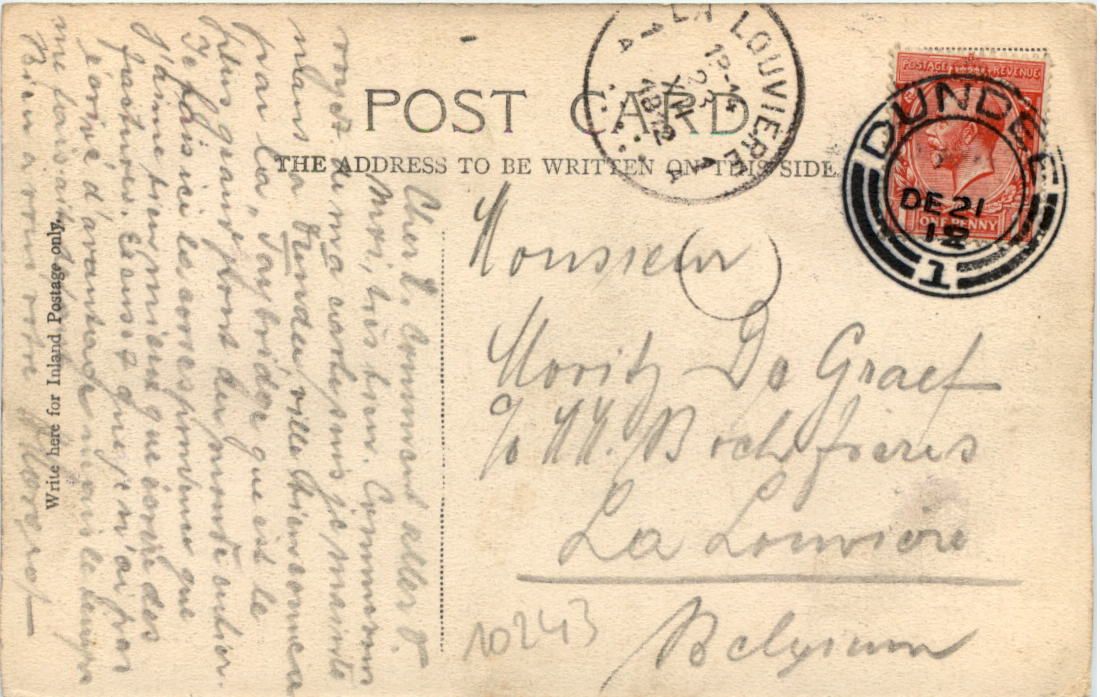 POST CARD
THE ADDRESS TO BE WRITTEN ON THIS SIDE
Write here for Inland Postage only.
LA LOUVIERE
POSTAGE REVENUE
ONE PENNY
DUNDEE
DE 21
12
1
Monsieur
Moritz De Graef
c/o MM. Boch frères
La Louvière
Belgium
10243
Cher Comment allez v.
Moi, très bien. Comme vous
voyez de ma carte, je mainte
nant a Dundee, ville bien connue
par la Taybridge que est le
plus grand pont du monde entier.
Je fais ici les correspondence que
j'aime bien mieux que écrire des
factures. que je n'ai pas
d'avantage mais le temps
me fais
Bien a vous votre